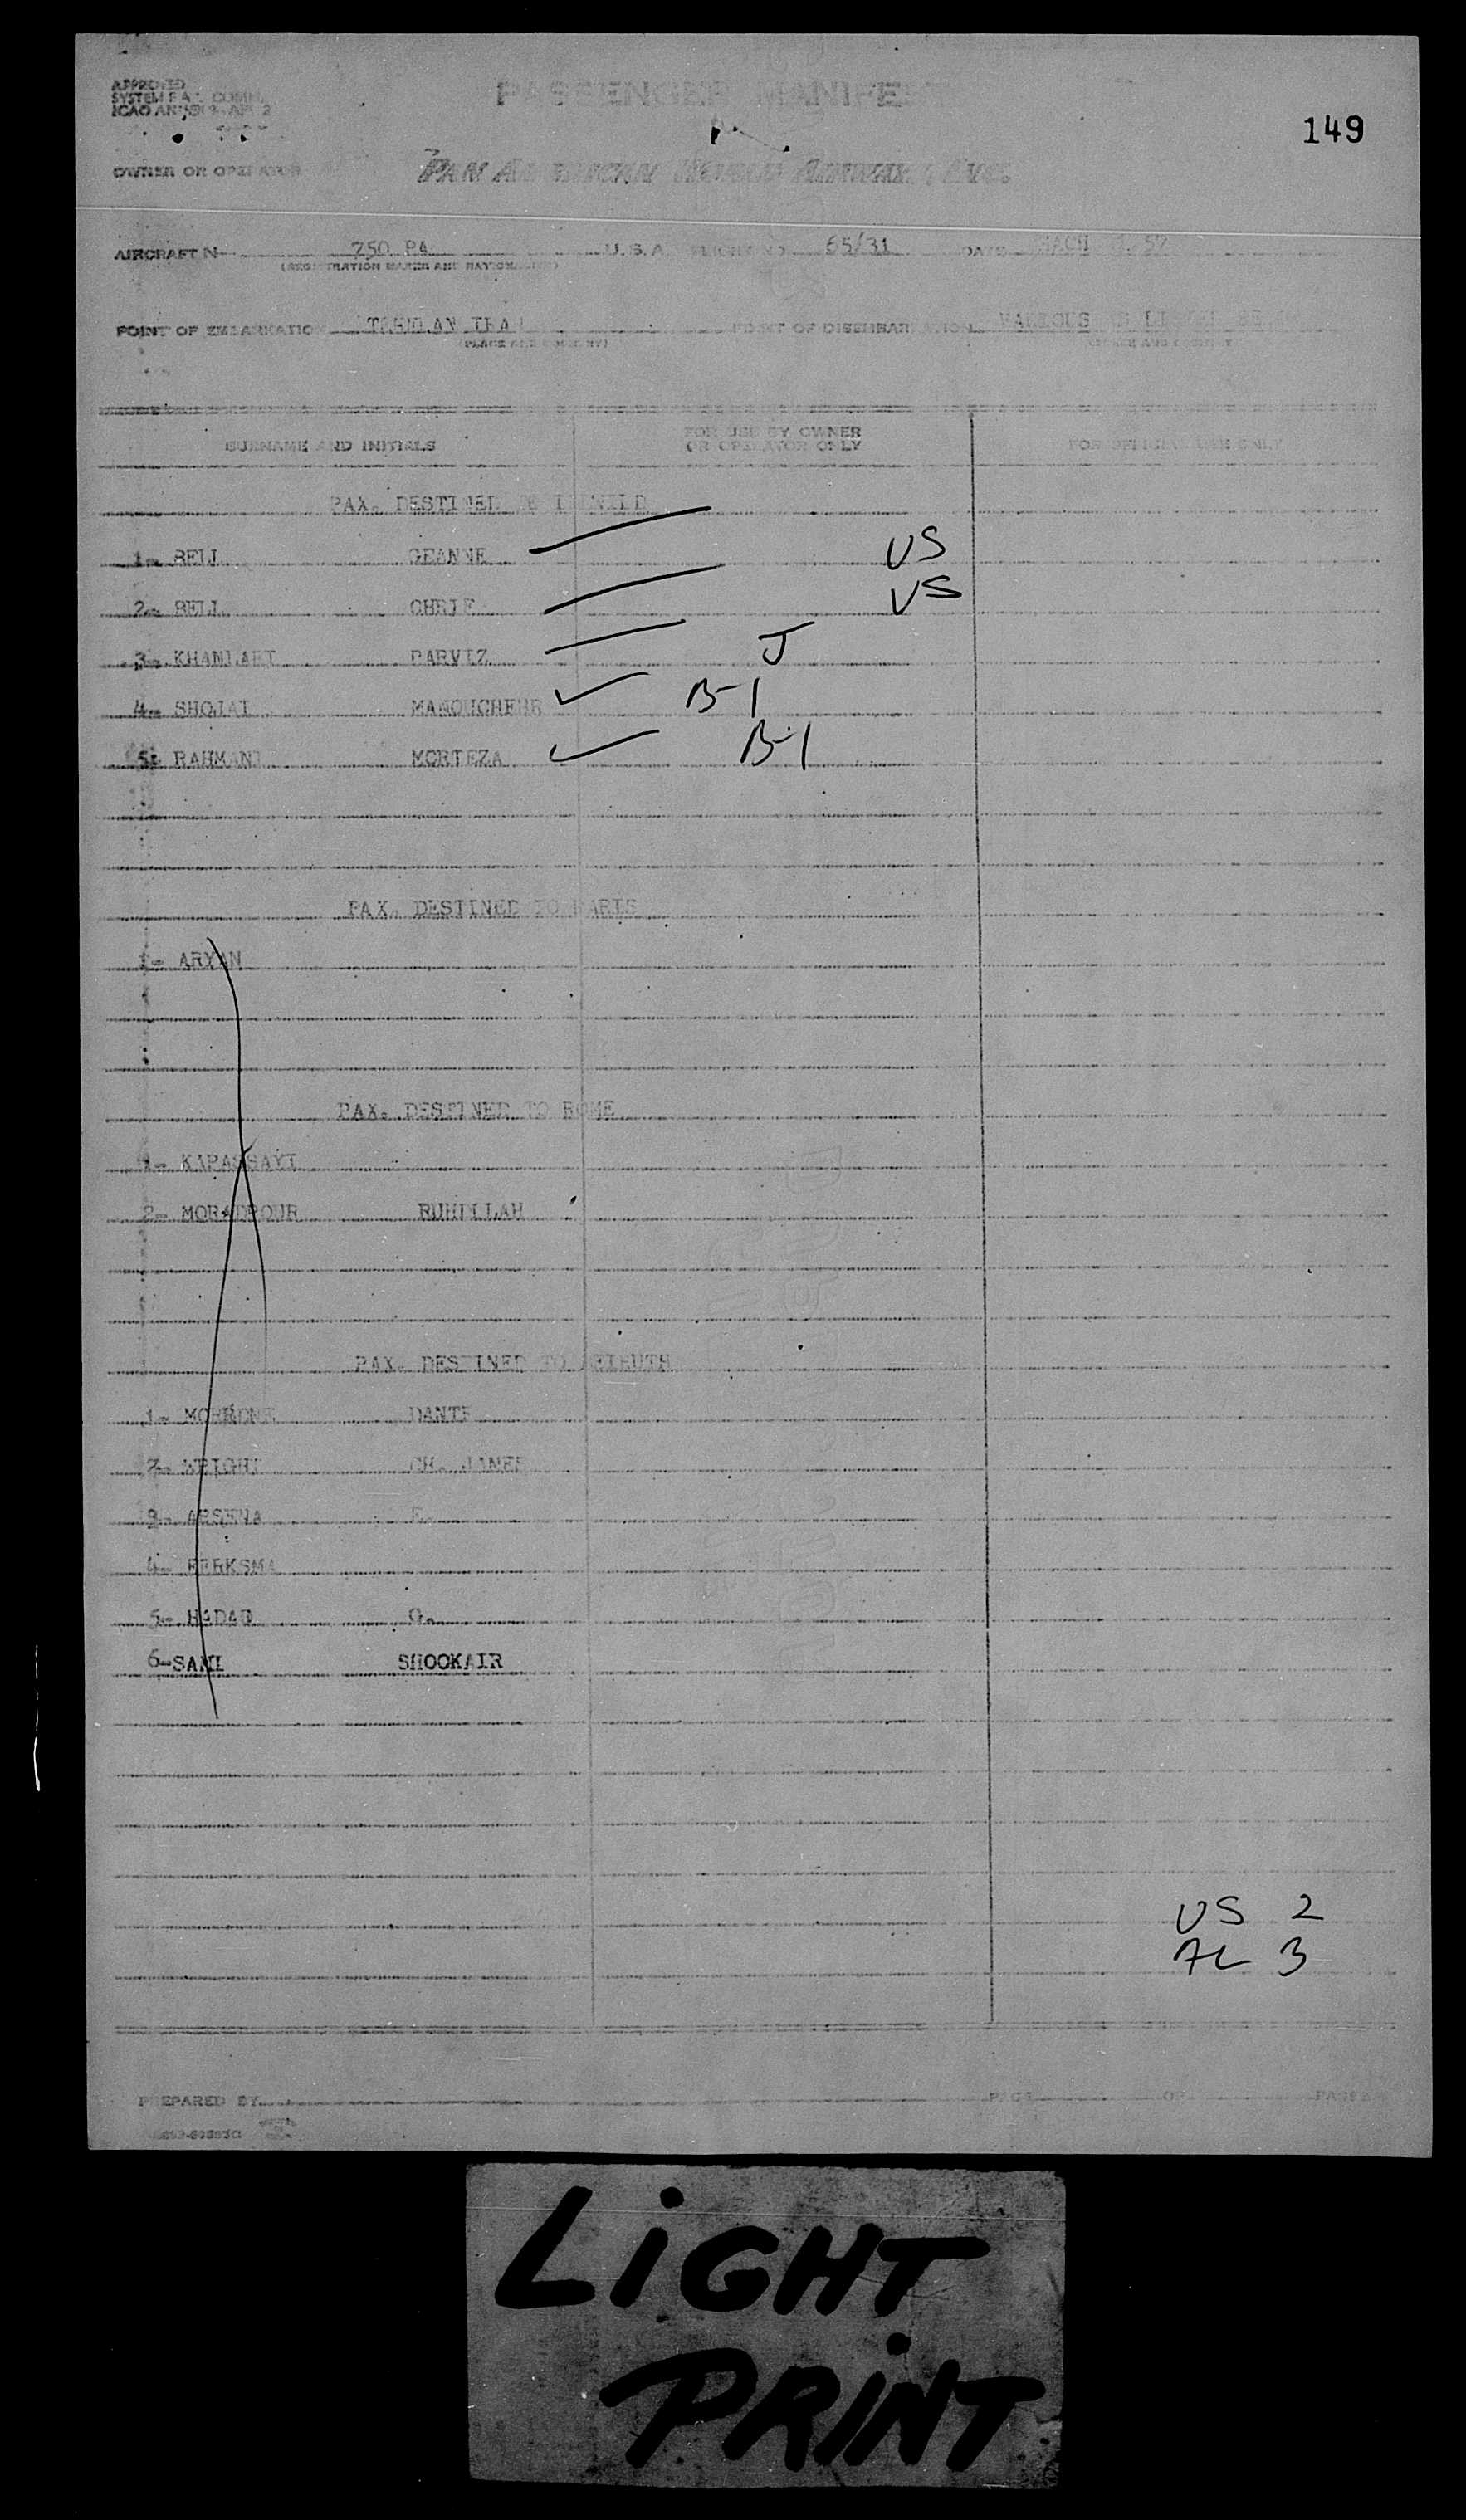 APPROVED
SYSTEM F A L COMM.
ICAO
PASSENGER MANIFE
149
OWNER OR OPERATOR
PAN AMERICAN WORLD AIRWAYS, INC.
AIRCRAFT N 750 PA U.S.A. FLIGHT NO. 65/31 DATE MACH 57
(REGISTRATION MARKS AND NATIONALITY)
POINT OF EMBARKATION POINT OF DISEMBARKATION VARIOUS
(PLACE AND COUNTRY) (PLACE AND COUNTRY)
SURNAME AND INITIALS FOR USE BY OWNER OR OPERATOR ONLY FOR OFFICIAL USE ONLY
PAX. DESTINED
1- BELL GEANNE US
2- BELL CHRIE US
3- KHANLARI PARVIZ J
4- SHOJAI MANOUCHEHR B-1
5- RAHMANI MORTEZA B-1
PAX. DESTINED TO PARIS
1- ARYAN
PAX. DESTINED TO ROME
1- KAPASSAYI
2- MORADPOUR RUHULLAH
PAX. DESTINED TO BEIRUTH
1- MORRONE DANTE
2- WRIGHT CH. JAMES
3- ARSENA
4- FERKSMA
5- HADAD G.
6-SAMI SHOOKAIR
US 2
AL 3
PREPARED BY PAGE OF PAGES
LIGHT
PRINT